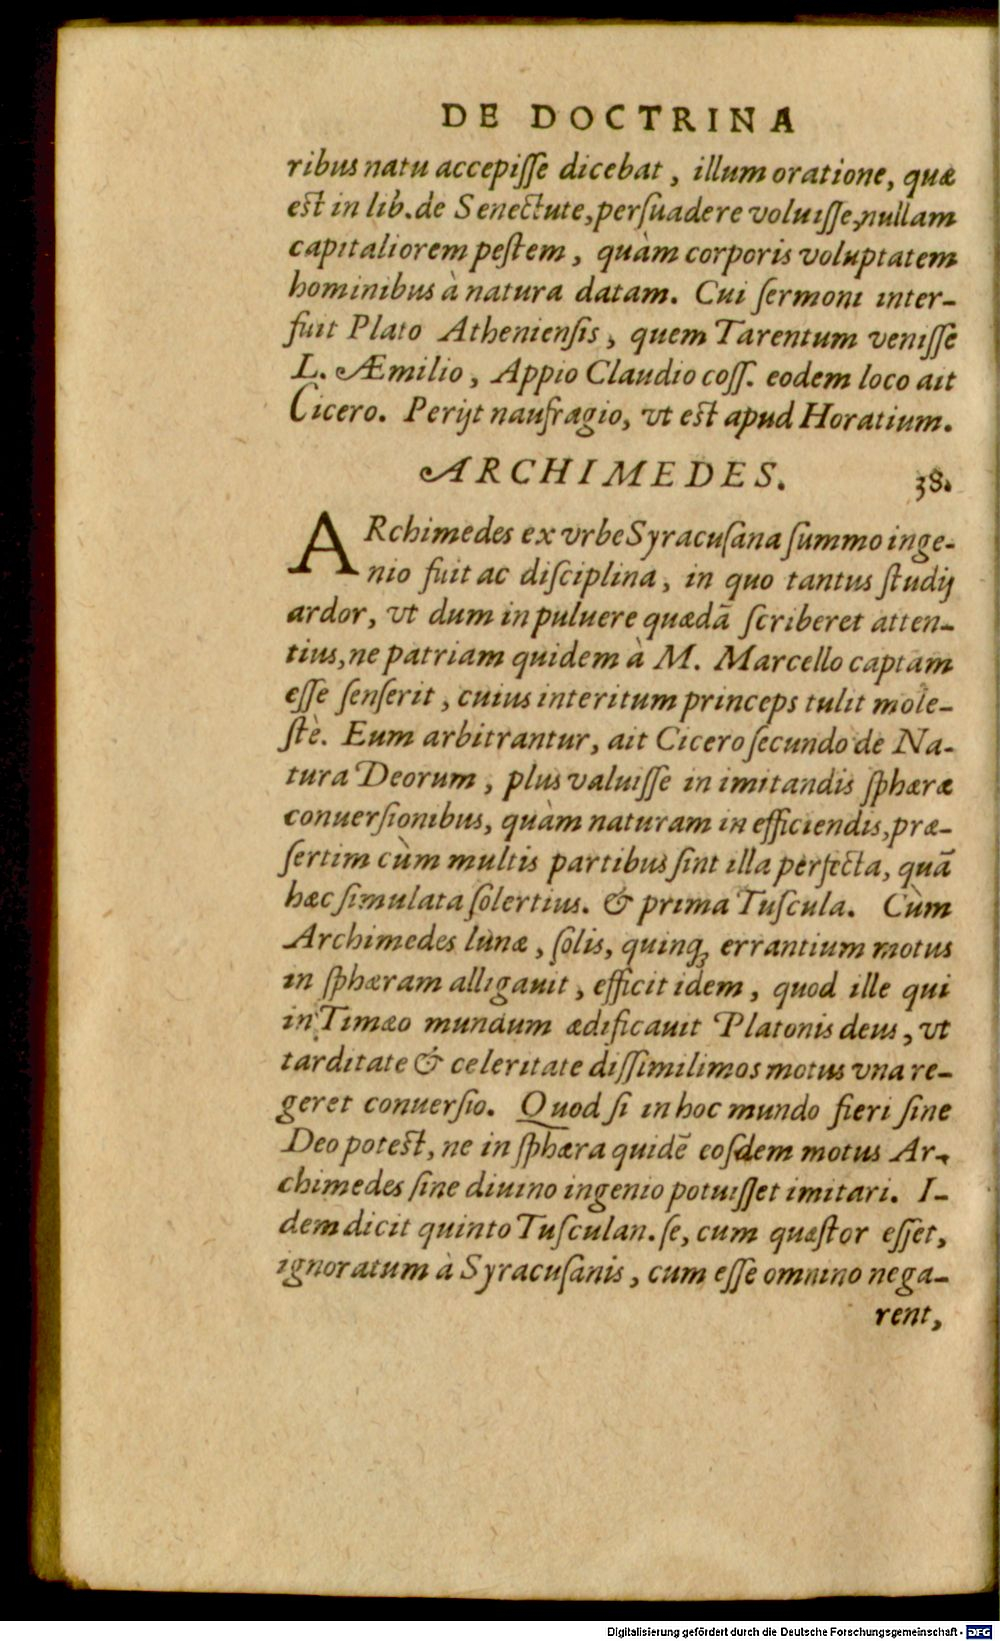 DE DOCTRINA
ribus natu accepiſſe dicebat, illum oratione, quæ
eſt in lib. de Senectute, perſuadere voluiſſe, nullam
capitaliorem peſtem, quàm corporis voluptatem
hominibus à natura datam. Cui ſermoni inter-
fuit Plato Athenienſis, quem Tarentum veniſſe
L. Æmilio, Appio Claudio coſſ. eodem loco ait
Cicero. Perijt naufragio, vt eſt apud Horatium.
ARCHIMEDES. 38.
ARchimedes ex vrbe Syracuſana ſummo inge-
nio fuit ac diſciplina, in quo tantus ſtudij
ardor, vt dum in puluere quædã ſcriberet atten-
tius, ne patriam quidem à M. Marcello captam
eſſe ſenſerit, cuius interitum princeps tulit mole-
ſtè. Eum arbitrantur, ait Cicero ſecundo de Na-
tura Deorum, plus valuiſſe in imitandis ſphæræ
conuerſionibus, quàm naturam in efficiendis, præ-
ſertim cùm multis partibus ſint illa perfecta, quã
hæc ſimulata ſolertius. & prima Tuſcula. Cùm
Archimedes lunæ, ſolis, quinq; errantium motus
in ſphæram alligauit, efficit idem, quod ille qui
in Timæo mundum ædificauit Platonis deus, vt
tarditate & celeritate diſſimilimos motus vna re-
geret conuerſio. Quod ſi in hoc mundo fieri ſine
Deo poteſt, ne in ſphæra quidẽ eoſdem motus Ar-
chimedes ſine diuino ingenio potuiſſet imitari. I-
dem dicit quinto Tuſculan. ſe, cum quæſtor eſſet,
ignoratum à Syracuſanis, cum eſſe omnino nega-
rent,
Digitalisierung gefördert durch die Deutsche Forschungsgemeinschaft - DFG